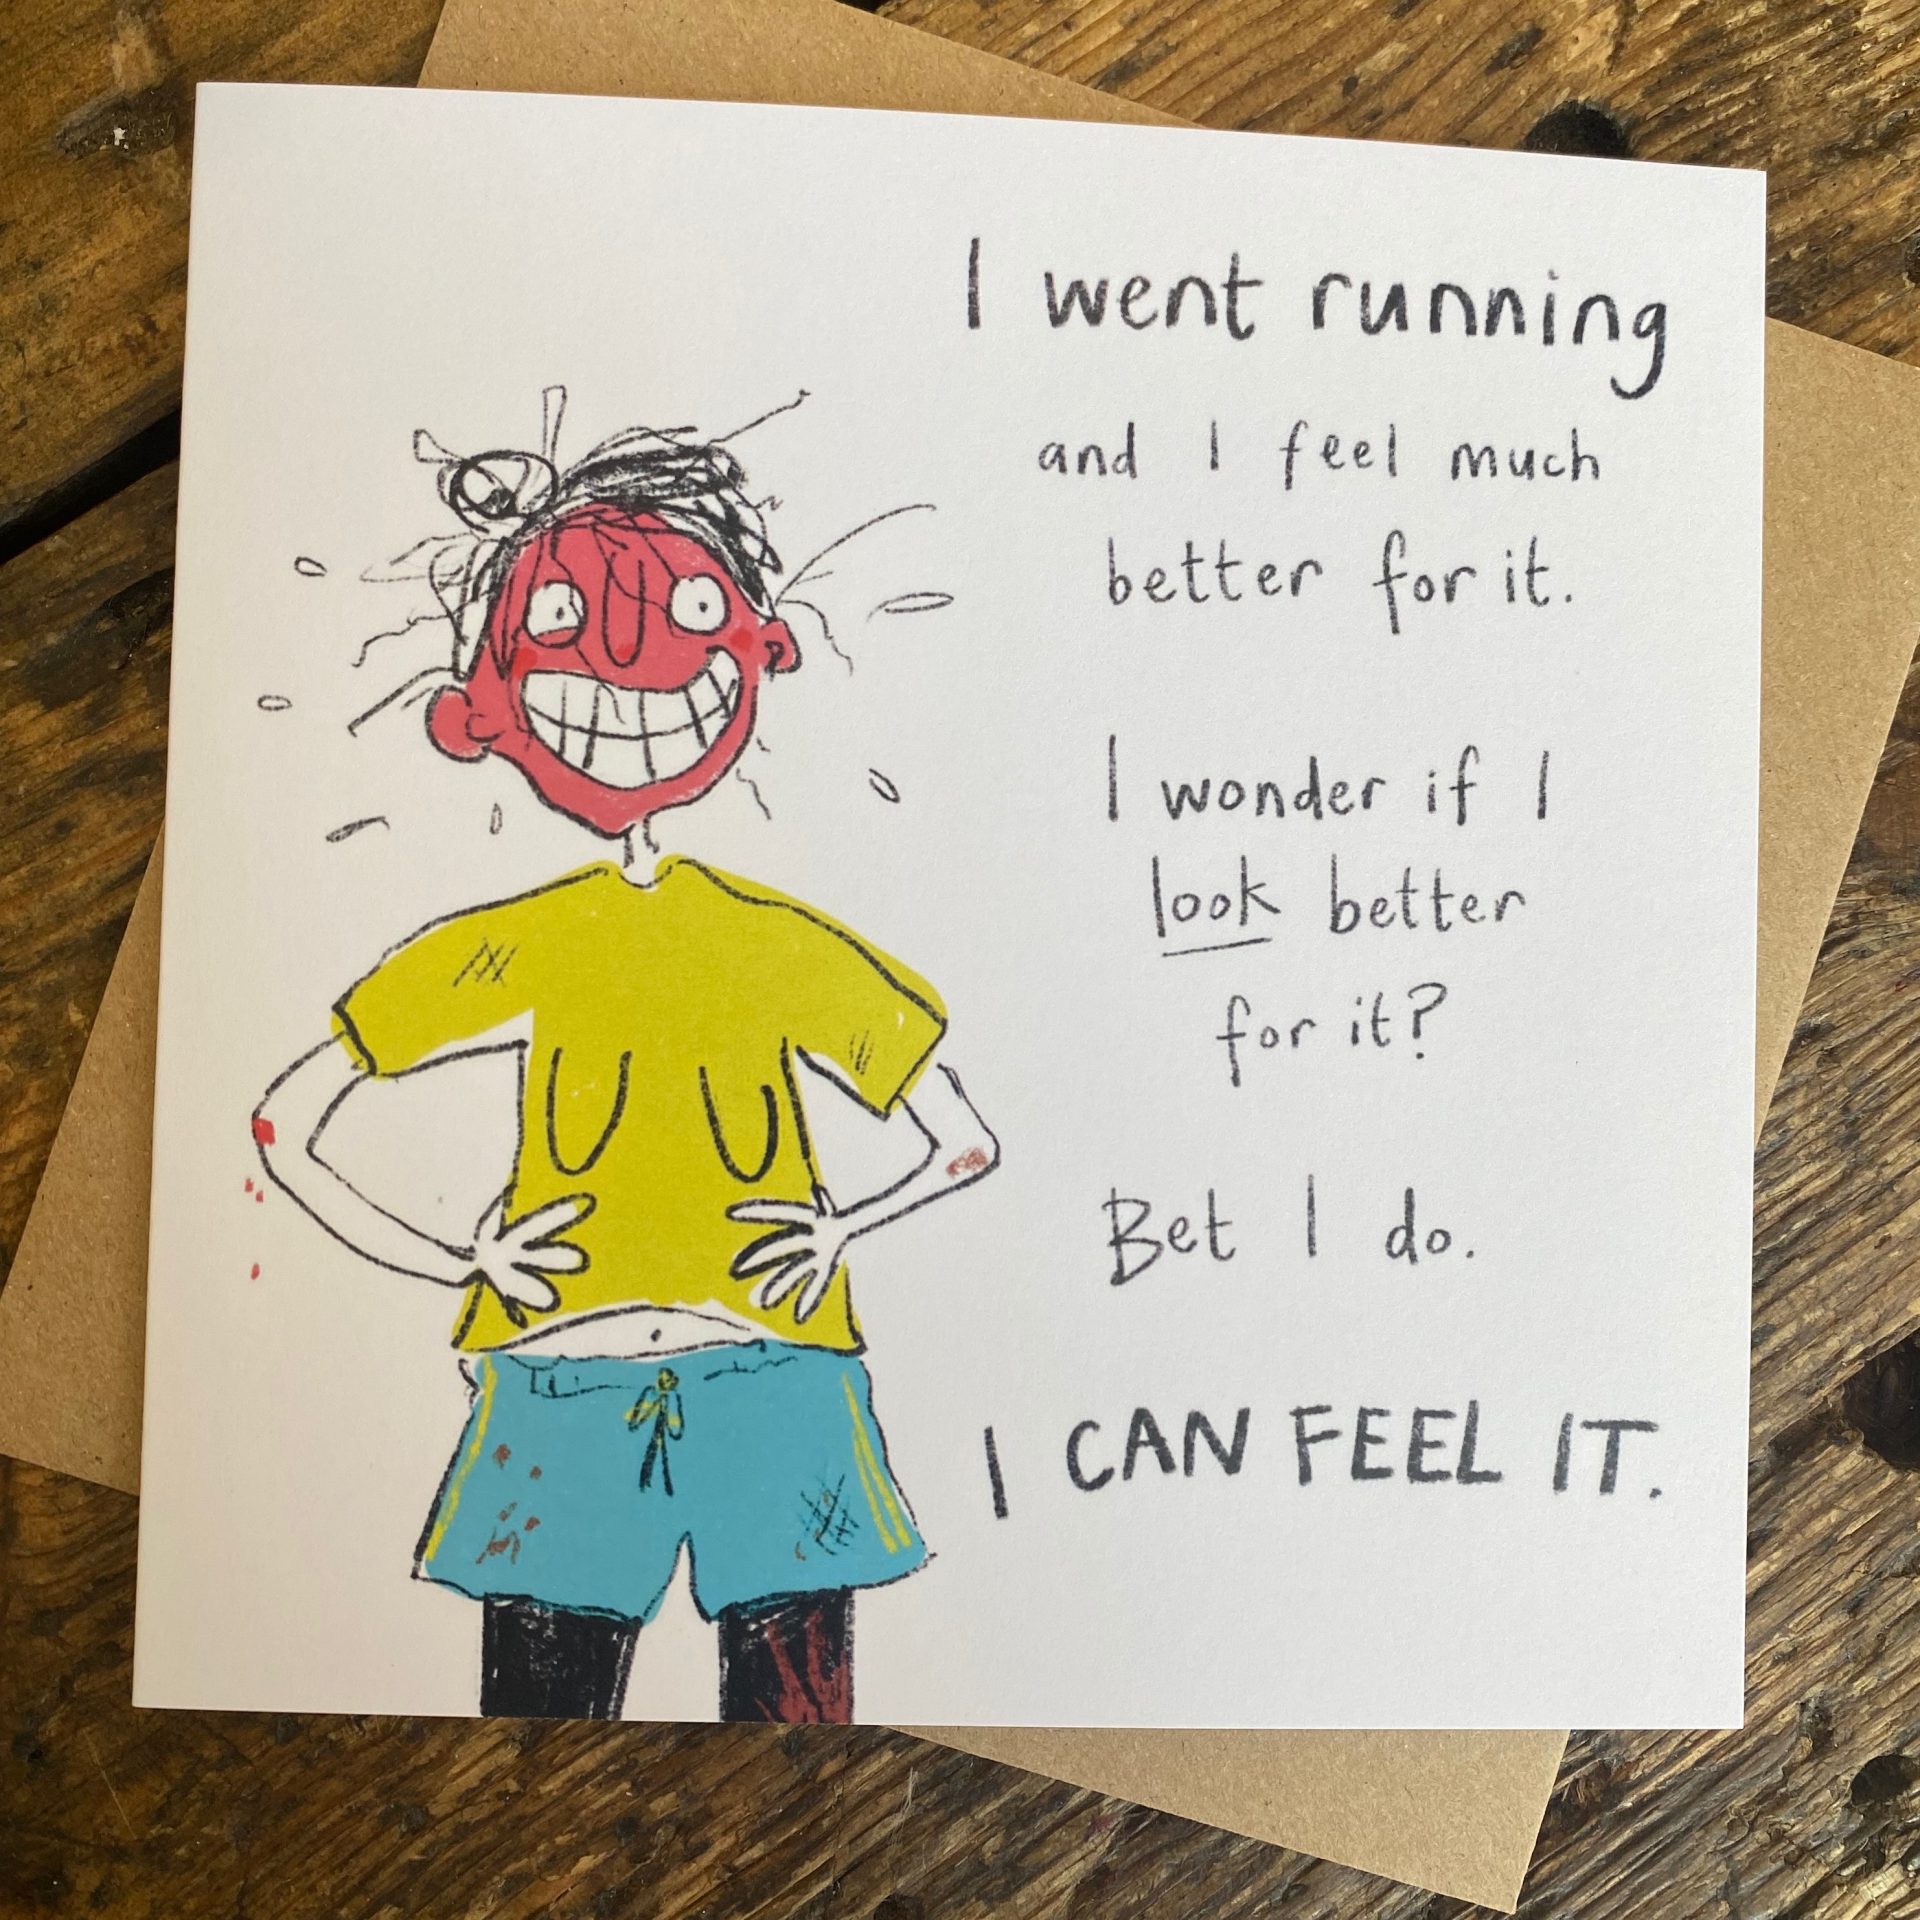 I went running
and I feel much
better for it.
I wonder if I
look better
for it?
Bet I do.
I CAN FEEL IT.